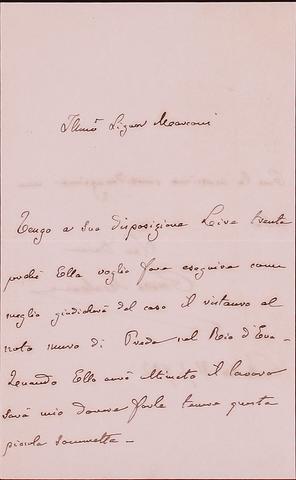 Illmo Signor Marconi
Tengo a Sua disposizione Lire trenta
perchè Ella voglia fare eseguire come
meglio giudicherà del caso il restauro al
noto muro di Preda nel Rio d'Eva-
Quando Ella avrà ultimato il lavoro
sarà mio dovere farle tenere questa
piccola sommetta-